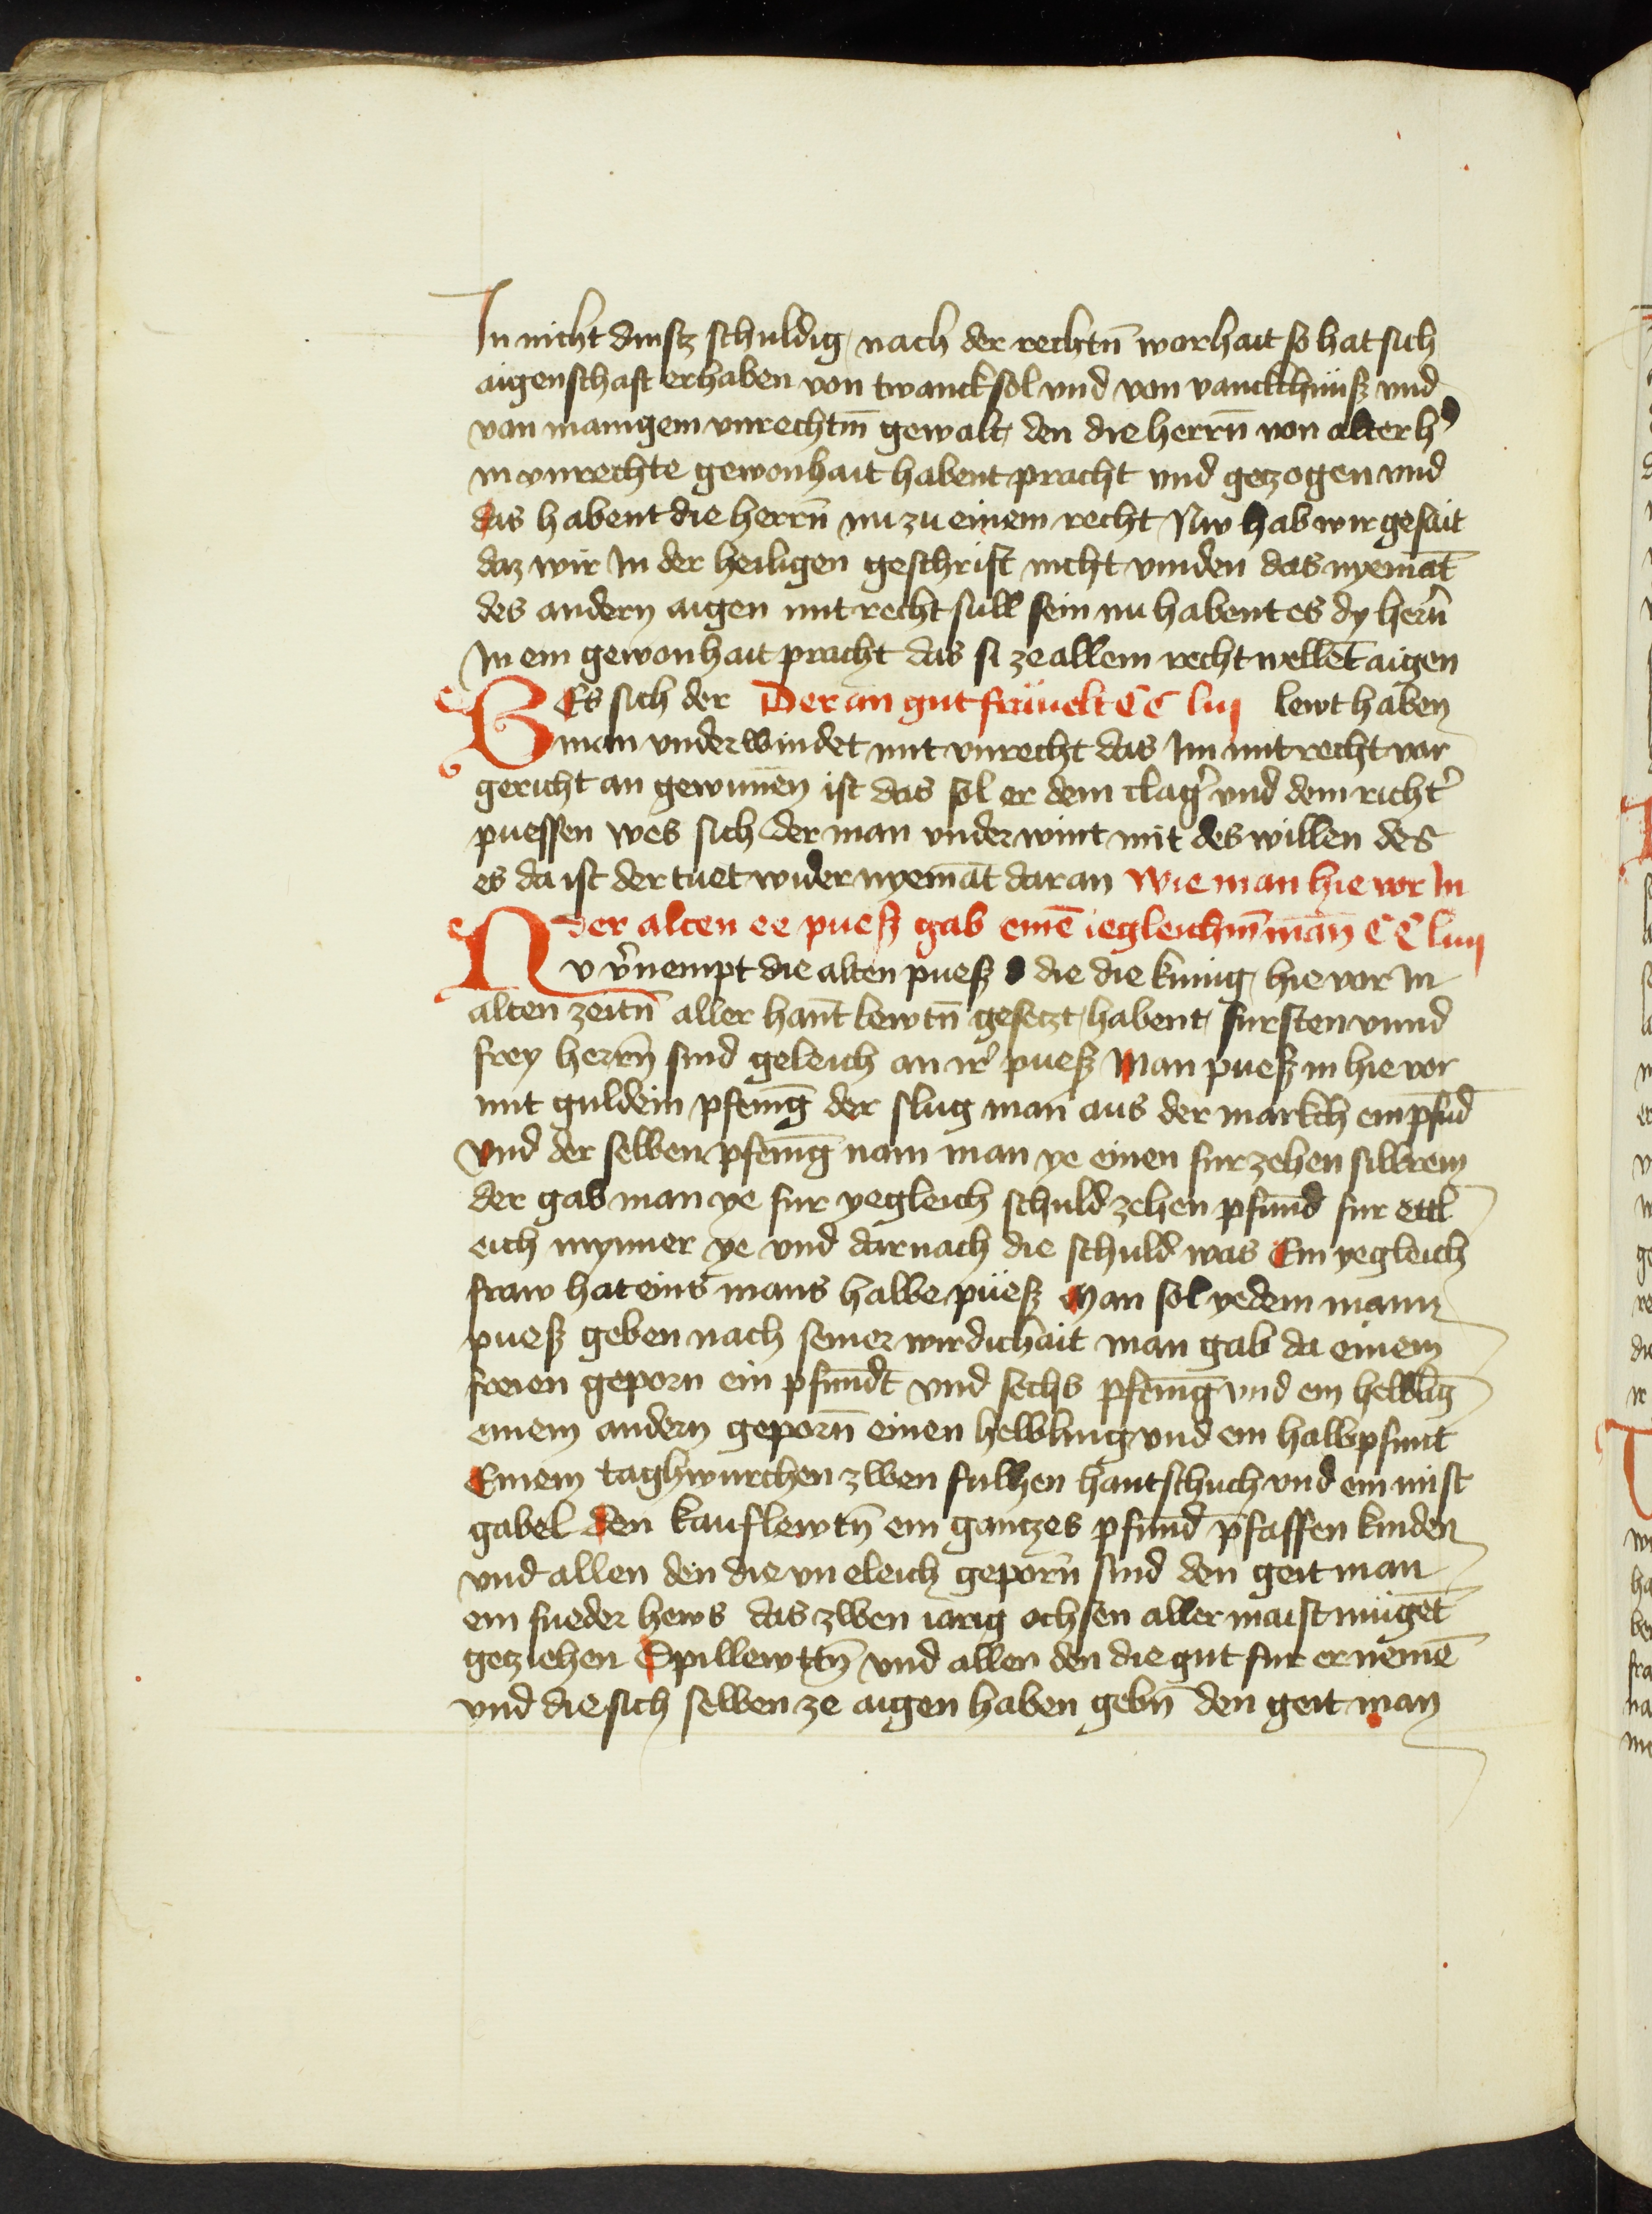 In nicht dinstz schuldig nach der rechtn̄ worhait so hat sich
aigenschaft erhaben von twancksol vnd von vanckchnüß vnd
van manigem vnrechtm̄ gewalt den die herrn̄ von alter h̕
in vnrechte gewonhait habent pracht vnd getzogen vnd
das habent die herrn̄ nu zu einem recht Nw hab wir gesait
daz wir In der heiligen geschrift nicht vinden das nyemāt
des andern aigen mit recht sull sein nu habent es dy hern̄
In ein gewonhait pracht das si ze allem recht wellēt aigen
WEs sich der Der an gut fräuelt CC liij lewt haben
man vnderwindet mit vnrecht das Im mit recht vor
gericht an gewunnen ist das sol er dem clag̕ vnd dem richt̕
puessen wes sich der man vnderwint mit des willen des
es da ist der tuet wider nyemāt daran Wie man hie vor In
der alten ee pueß gab einē iegleichm̄ man CC liiij
NV v̕nempt die alten pueß die die kunig hie vor In
alten zeitn̄ aller hant lewtn̄ gesetzt habent fursten vnnd
frey herrn̄ sind geleich an ir̕ pueß Man pueß in hie vor
mit guldein pfenīg der slug man aus der markch ein pfūd
vnd der selben pfenīg nam man ye einen fur zehen silbrein
der gab man ye fur yegleich schuld zehen pfund fur ettl
eich mynner ye vnd darnach die schuld was Ein yegleich
fraw hat eins mans halbe püeß Man sol yedem mann
pueß geben nach seiner wirdichait man gab da einem
freien geporn ein pfundt vnd sechs pfenīg vnd ein helblīg
einem andern geporn̄ einen helbling vnd ein halb pfunt
Einem taghwurchen zwen fulhen hantschuch vnd ein mist
gabel den kauflewtn̄ ein gantzes pfund pfaffen kinden
vnd allen den die vn eleich geporn̄ sind den geit man
ein fueder hews das zwen iarig ochsen aller maist mügēt
getziehen Spillewttn̄ vnd allen den die gut fur er nemē
vnd die sich selben ze aigen haben gebn̄ den geit man